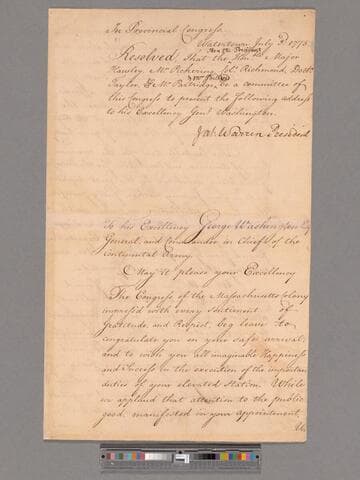 In Provincial Congress
Watertown July 1775
Resolved, That the Honble Major
Hawley, Mr Pickering, Colo Richmond, Doctr
Taylor, & Mr Partridge, be a committee of
this Congress to present the following address
to his Excellency Genl Washington.
Jas Warren President
To his Excellency George Washington Esq
General, and Commander in Chief of the
continental Army.
May it please your Excellency
The Congress of the Massachusetts Colony
impress'd with every Sentiment of
Gratitude, and Respect, beg leave to
congratulate you on your safe arrival;
and to wish you all imaginable Happiness
and Success in the execution of the important
duties of your elevated Station. While
we applaud that attention to the public
good, manifested in your appointment,